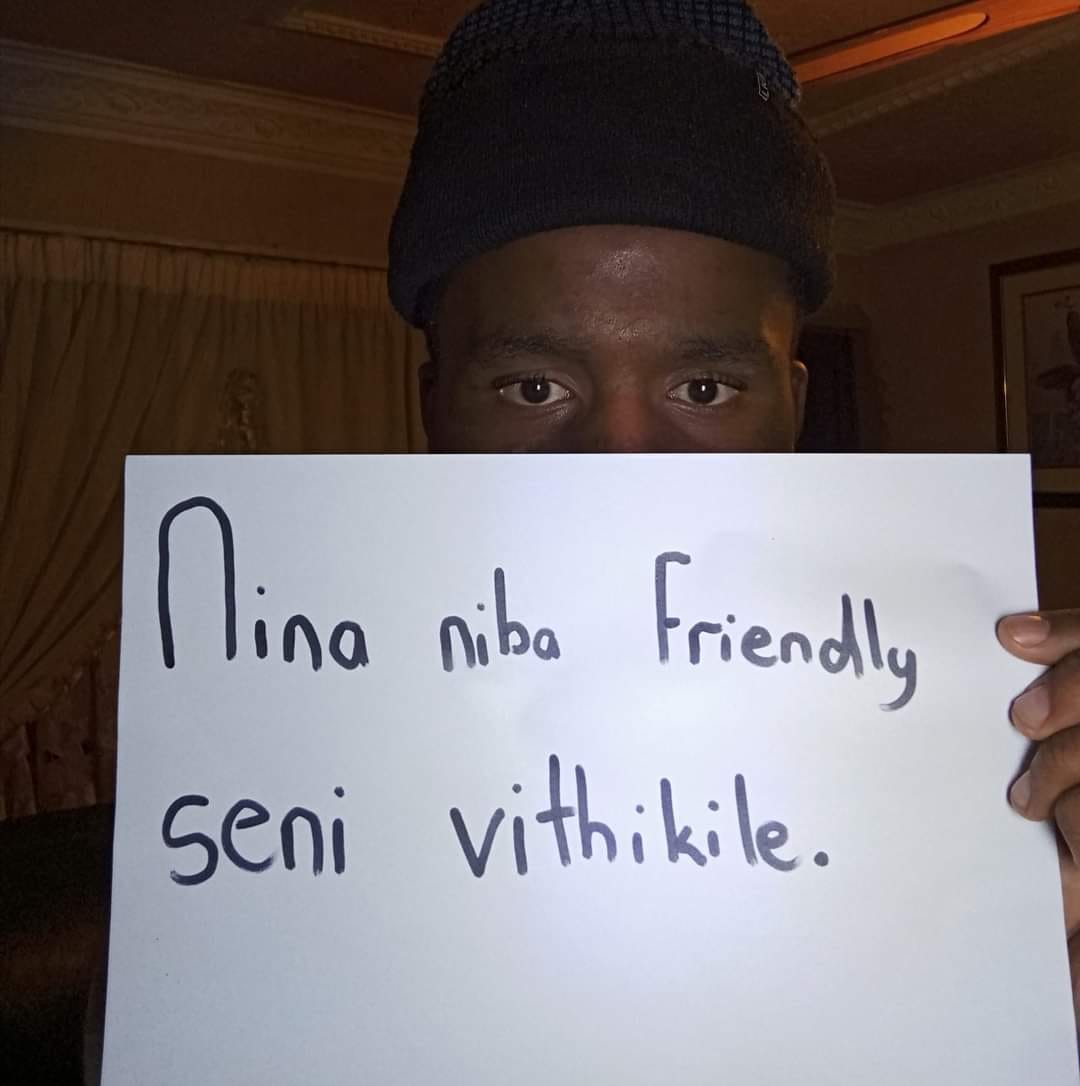 Nina niba Friendly
seni vithikile.